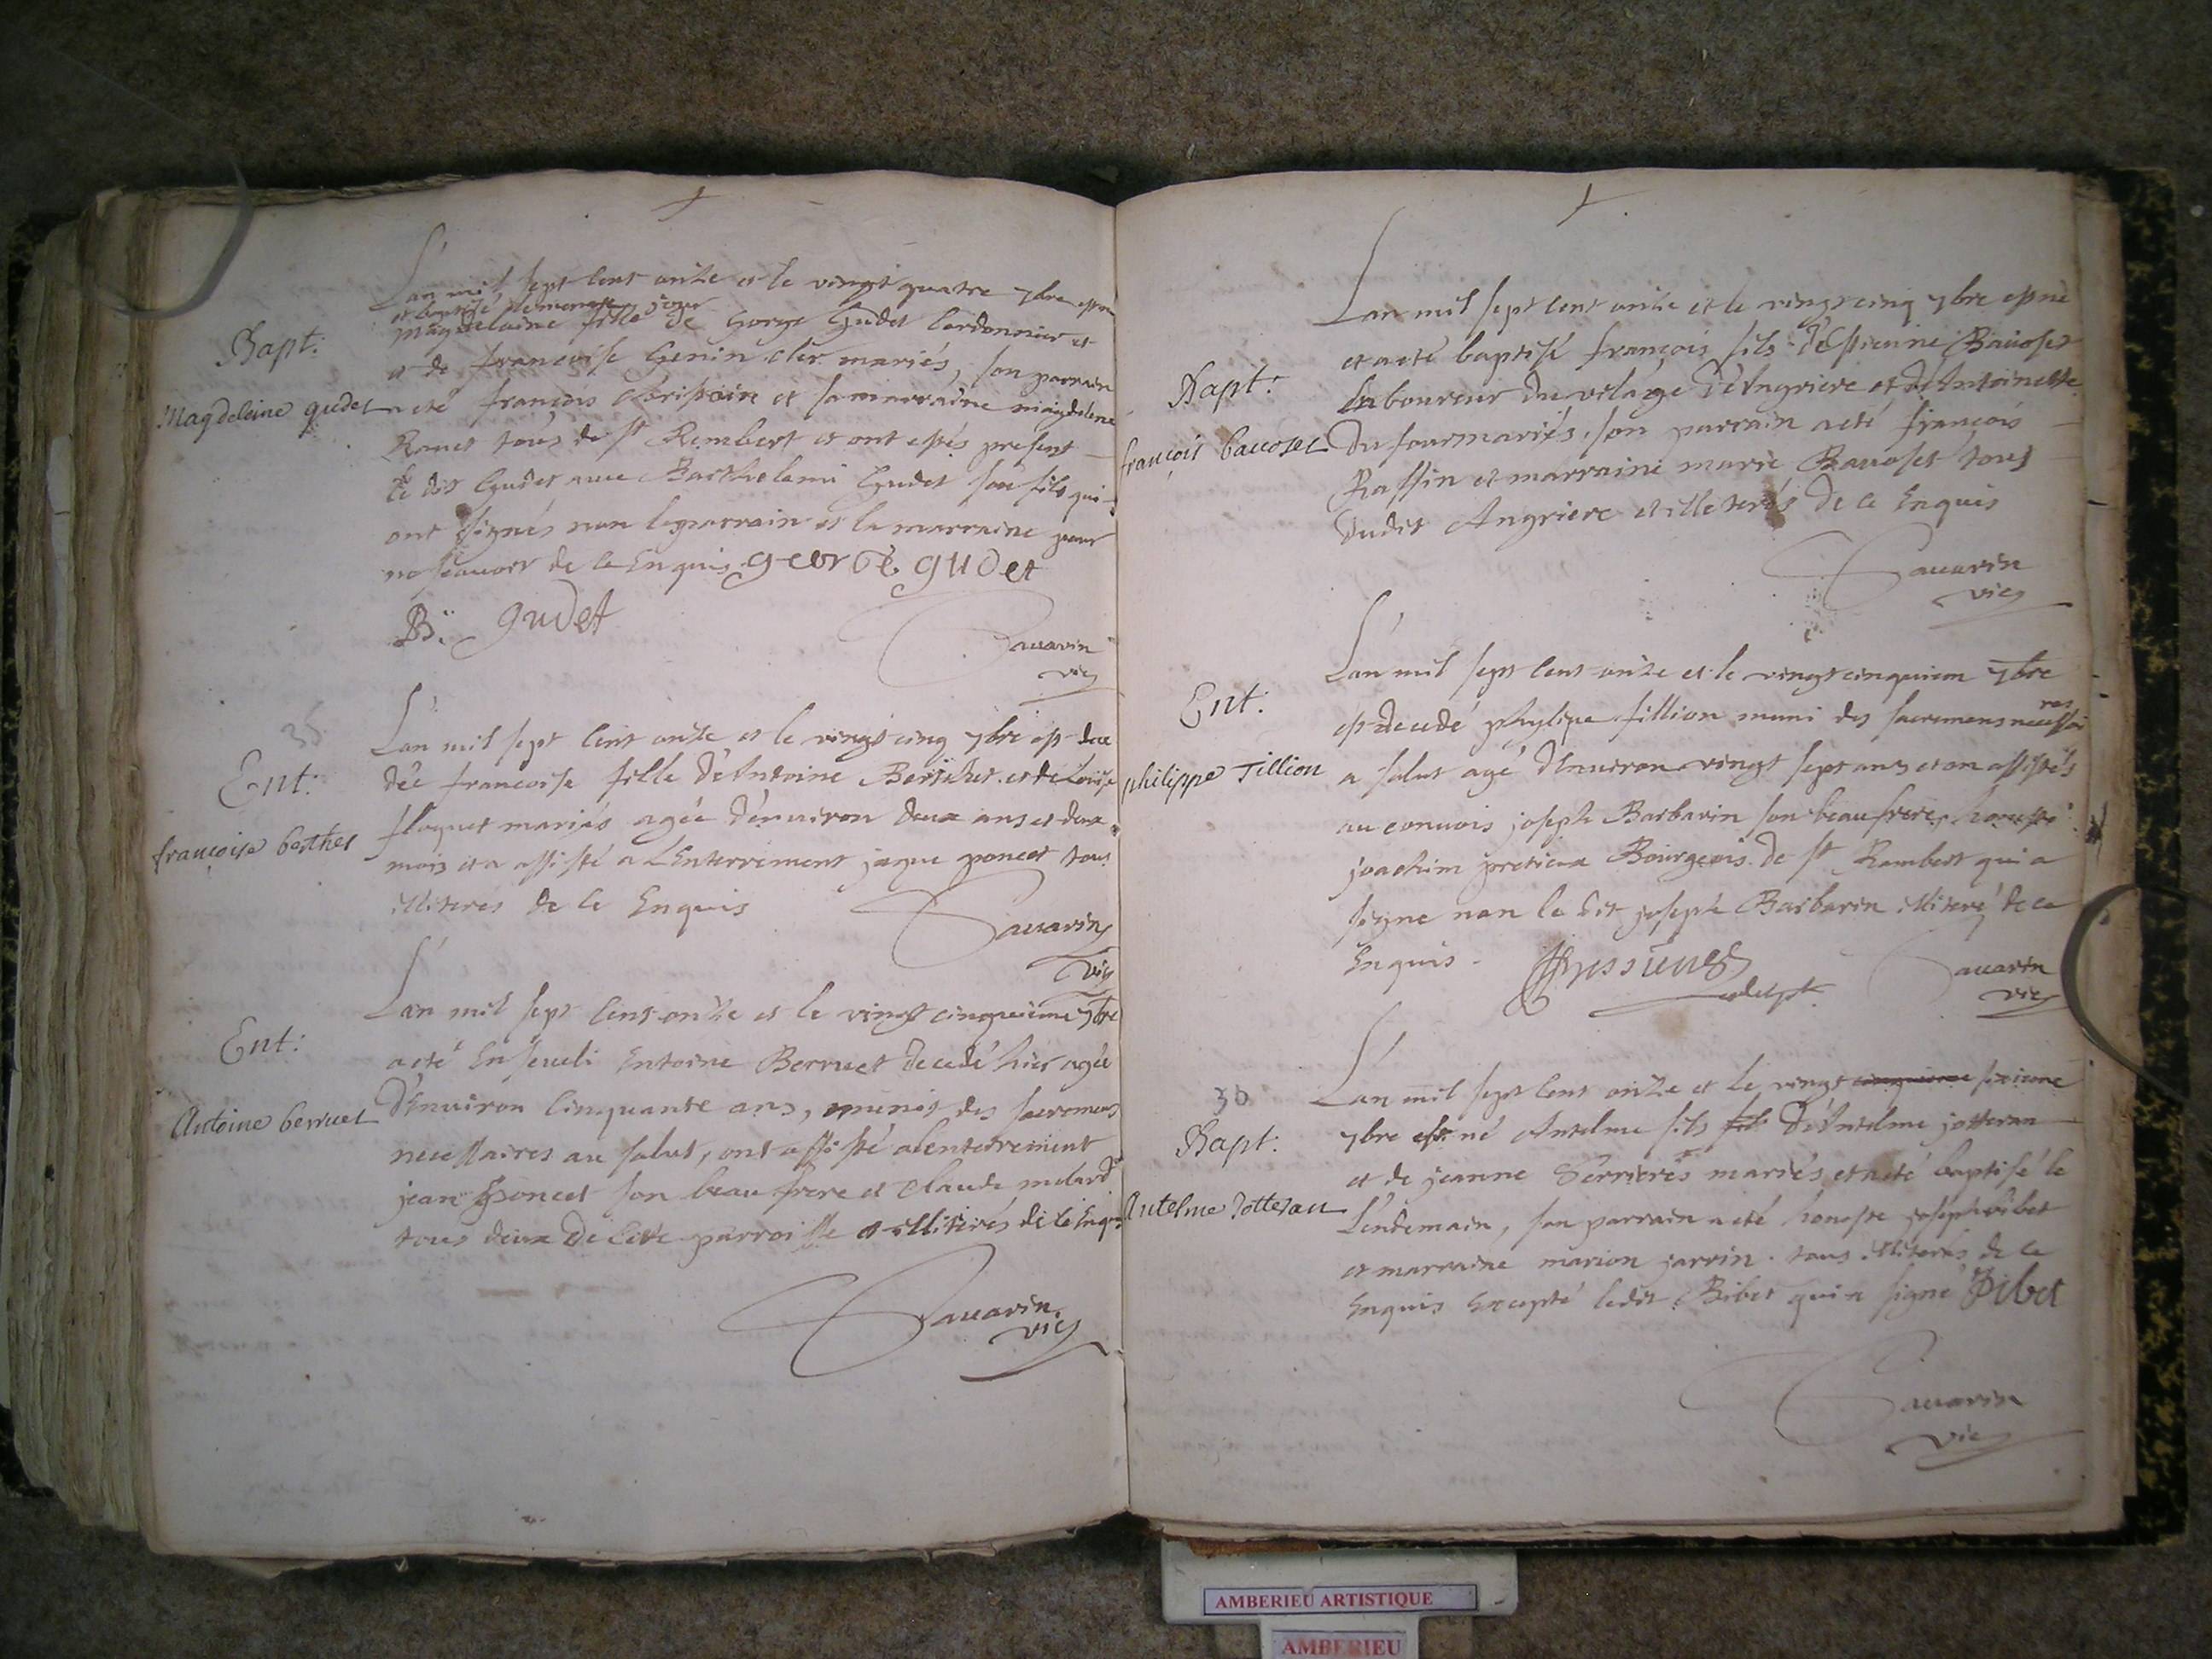 Bapt:
Magdeleine gudet
L'an mil sept cent onze et le vingt quatre 7bre est née
et baptisé le meme jour
Magdelaine fille de George Gudet Cordonnier et
et de francoise Genin cler mariés, son parrain
a eté françois et sa marraine magdelene
tous de st Rembert et ont estés present
le dit Gudet avec Bartholemi Gudet son fils qui
ont signés non le parrain et la marraine pour
ne scavoir de ce Enquis george gudet
B. gudet
Savarin
vic
35
Ent:
françoise berthet
L'an mil sept cent onze et le vingt cinq 7bre est dece
dée francoise fille d'Antoine et de Louise
floquet mariés agée d'environ deux ans et deux
mois et a assisté a L'Enterrement jaque poncet tous
illiterés de ce Enquis
Savarin
vic
Ent:
Antoine berruet
L'an mil sept cens onze et le vingt cinquieme 7bre
a eté Enseveli Entoine Berruet decedé hier agée
d'Environ Cinquante ans, munis des sacremens
necessaires au salut, ont assisté a lenterrement
jean Poncet son beau frere et Claude molard
tous deux de cette parroisse et illiterés de ce Enq
Savarin
vic
Bapt:
françois bavoset
L'an mil sept cent onze et le vingt cinq 7bre est né
et a eté baptisé françois fils d'Estienne Bavoset
laboureur du vilage d'Angriere et d'Antoinette
Dufour mariés, son parrain a eté françois
Raffin et marraine marie Bavoset tous
dudit Angriere et illiterés de ce Enquis
Savarin
vic
Ent:
philippe Tillion
L'an mil sept cent onze et le vingt cinquiem 7bre
est decedé phylipe fillion muni des sacremens necessai
res
a salut agé d'Environ vingt sept ans et on assistés
au convois joseph Barbarin son beau frere, honeste
joachim Bourgeois de st Rambert qui a
signe non le dit joseph Barbarin illiteré de ce
Enquis
Savarin
vic
36
Bapt:
Antelme Jotteran
L'an mil sept cent onze et le vingt cinquieme sixieme
7bre est né Antelme fils fils d'Antelme jotteran
et de jeanne Serrieres mariés et a eté baptisé le
Lendemain, son parrain a eté honeste joseph Bibet
et marraine marion jarrin tous illiterés de ce
Enquis Excepté ledit Bibet qui a signé Bibet
Savarin
vic
AMBERIEU ARTISTIQUE
AMBERIEU